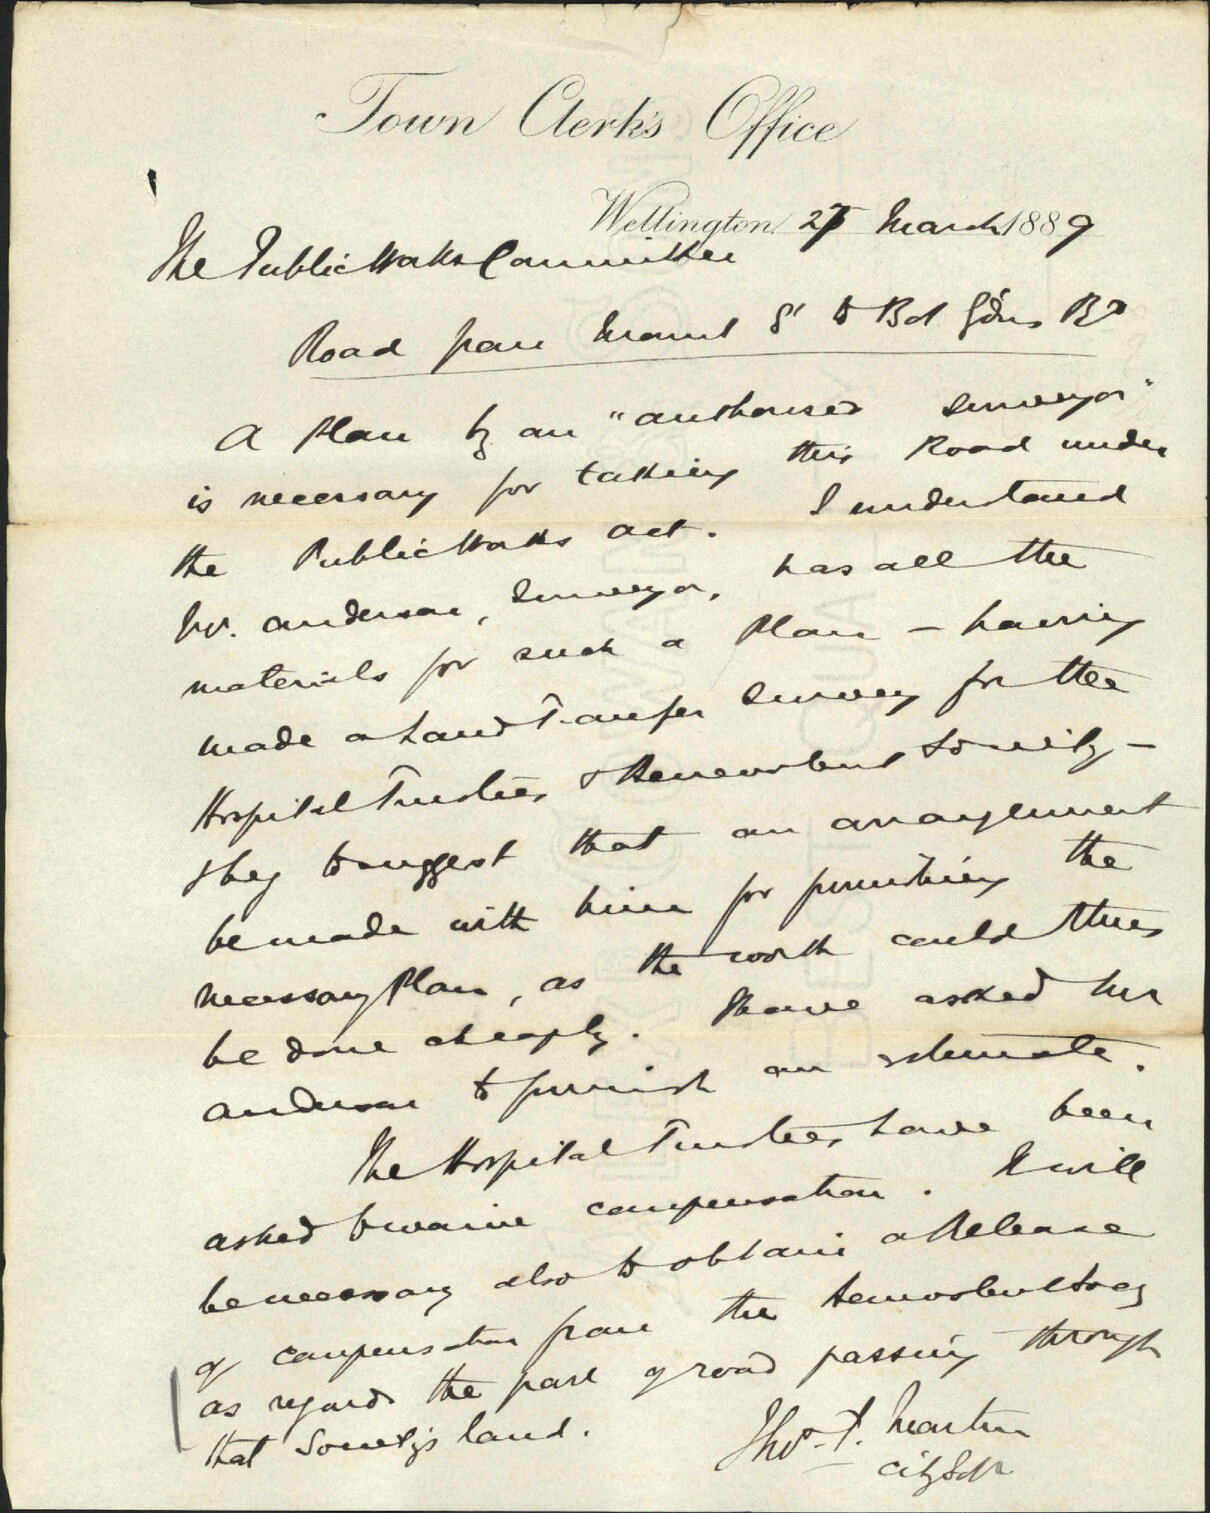 Town Clerk's Office
Wellington 27 March 1889
The Public Works Committee
Road from Mount St to Bot Gdns Rd
A Plan by an "authorised surveyor"
is necessary for taking this Road under
the Public Works Act. I understand
Mr. Anderson, Surveyor, has all the
materials for such a Plan – having
made a Land Transfer survey for the
Hospital Trustees & Benevolent Society –
I beg to suggest that an arrangement
be made with him for furnishing the
necessary Plan, as the work could thus
be done cheaply. I have asked Mr
Anderson to furnish an estimate.
The Hospital Trustees have been
asked to waive compensation. It will
be necessary also to obtain a Release
of compensation from the Benevolent Socy
as regards the part of road passing through
that Society's land.
Thos. F. Martin
City Solr